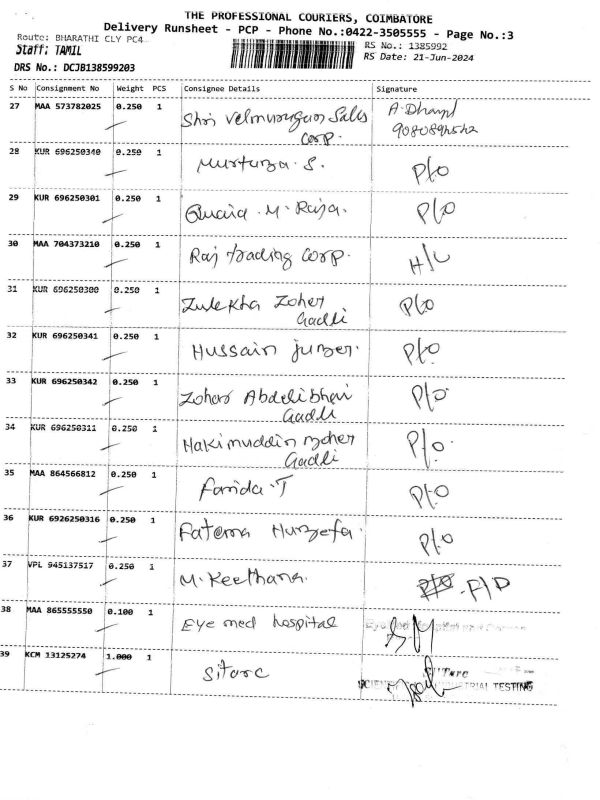 THE PROFESSIONAL COURIERS, COIMBATORE
Delivery Runsheet - PCP - Phone No.:0422-3505555 - Page No.:3
Route: BHARATHI CLY PC4
RS No.: 1385992
Staff: TAMIL
RS Date: 21-Jun-2024
DRS No.: DCJB138599203
S No Consignment No Weight PCS Consignee Details Signature
27 MAA 573782025 0.250 1 Shri Velmurugan Sales
Corp.
28 KUR 696250340 0.250 1 Murtuza . S. P/o
29 KUR 696250301 0.250 1 Quaid . M. Raja. P/o
30 MAA 704373210 0.250 1 Raj trading Corp. H/L
31 KUR 696250300 0.250 1 Zulekha Zoher P/o
Gaddi
32 KUR 696250341 0.250 1 Hussain juzer. P/o
33 KUR 696250342 0.250 1 Zoher Abdelibhai P/o
Gaddi
34 KUR 696250311 0.250 1 Hakimuddin Zoher P/o.
Gaddi
35 MAA 864566812 0.250 1 Farida . T P/o
36 KUR 6926250316 0.250 1 Fatema Huzefa. P/o
37 VPL 945137517 0.250 1 M. Keethana. F/D
38 MAA 865555550 0.100 1 Eye med hospital
39 KCM 13125274 1.000 1 Sitarc
SI'Tarc
INDUSTRIAL TESTING